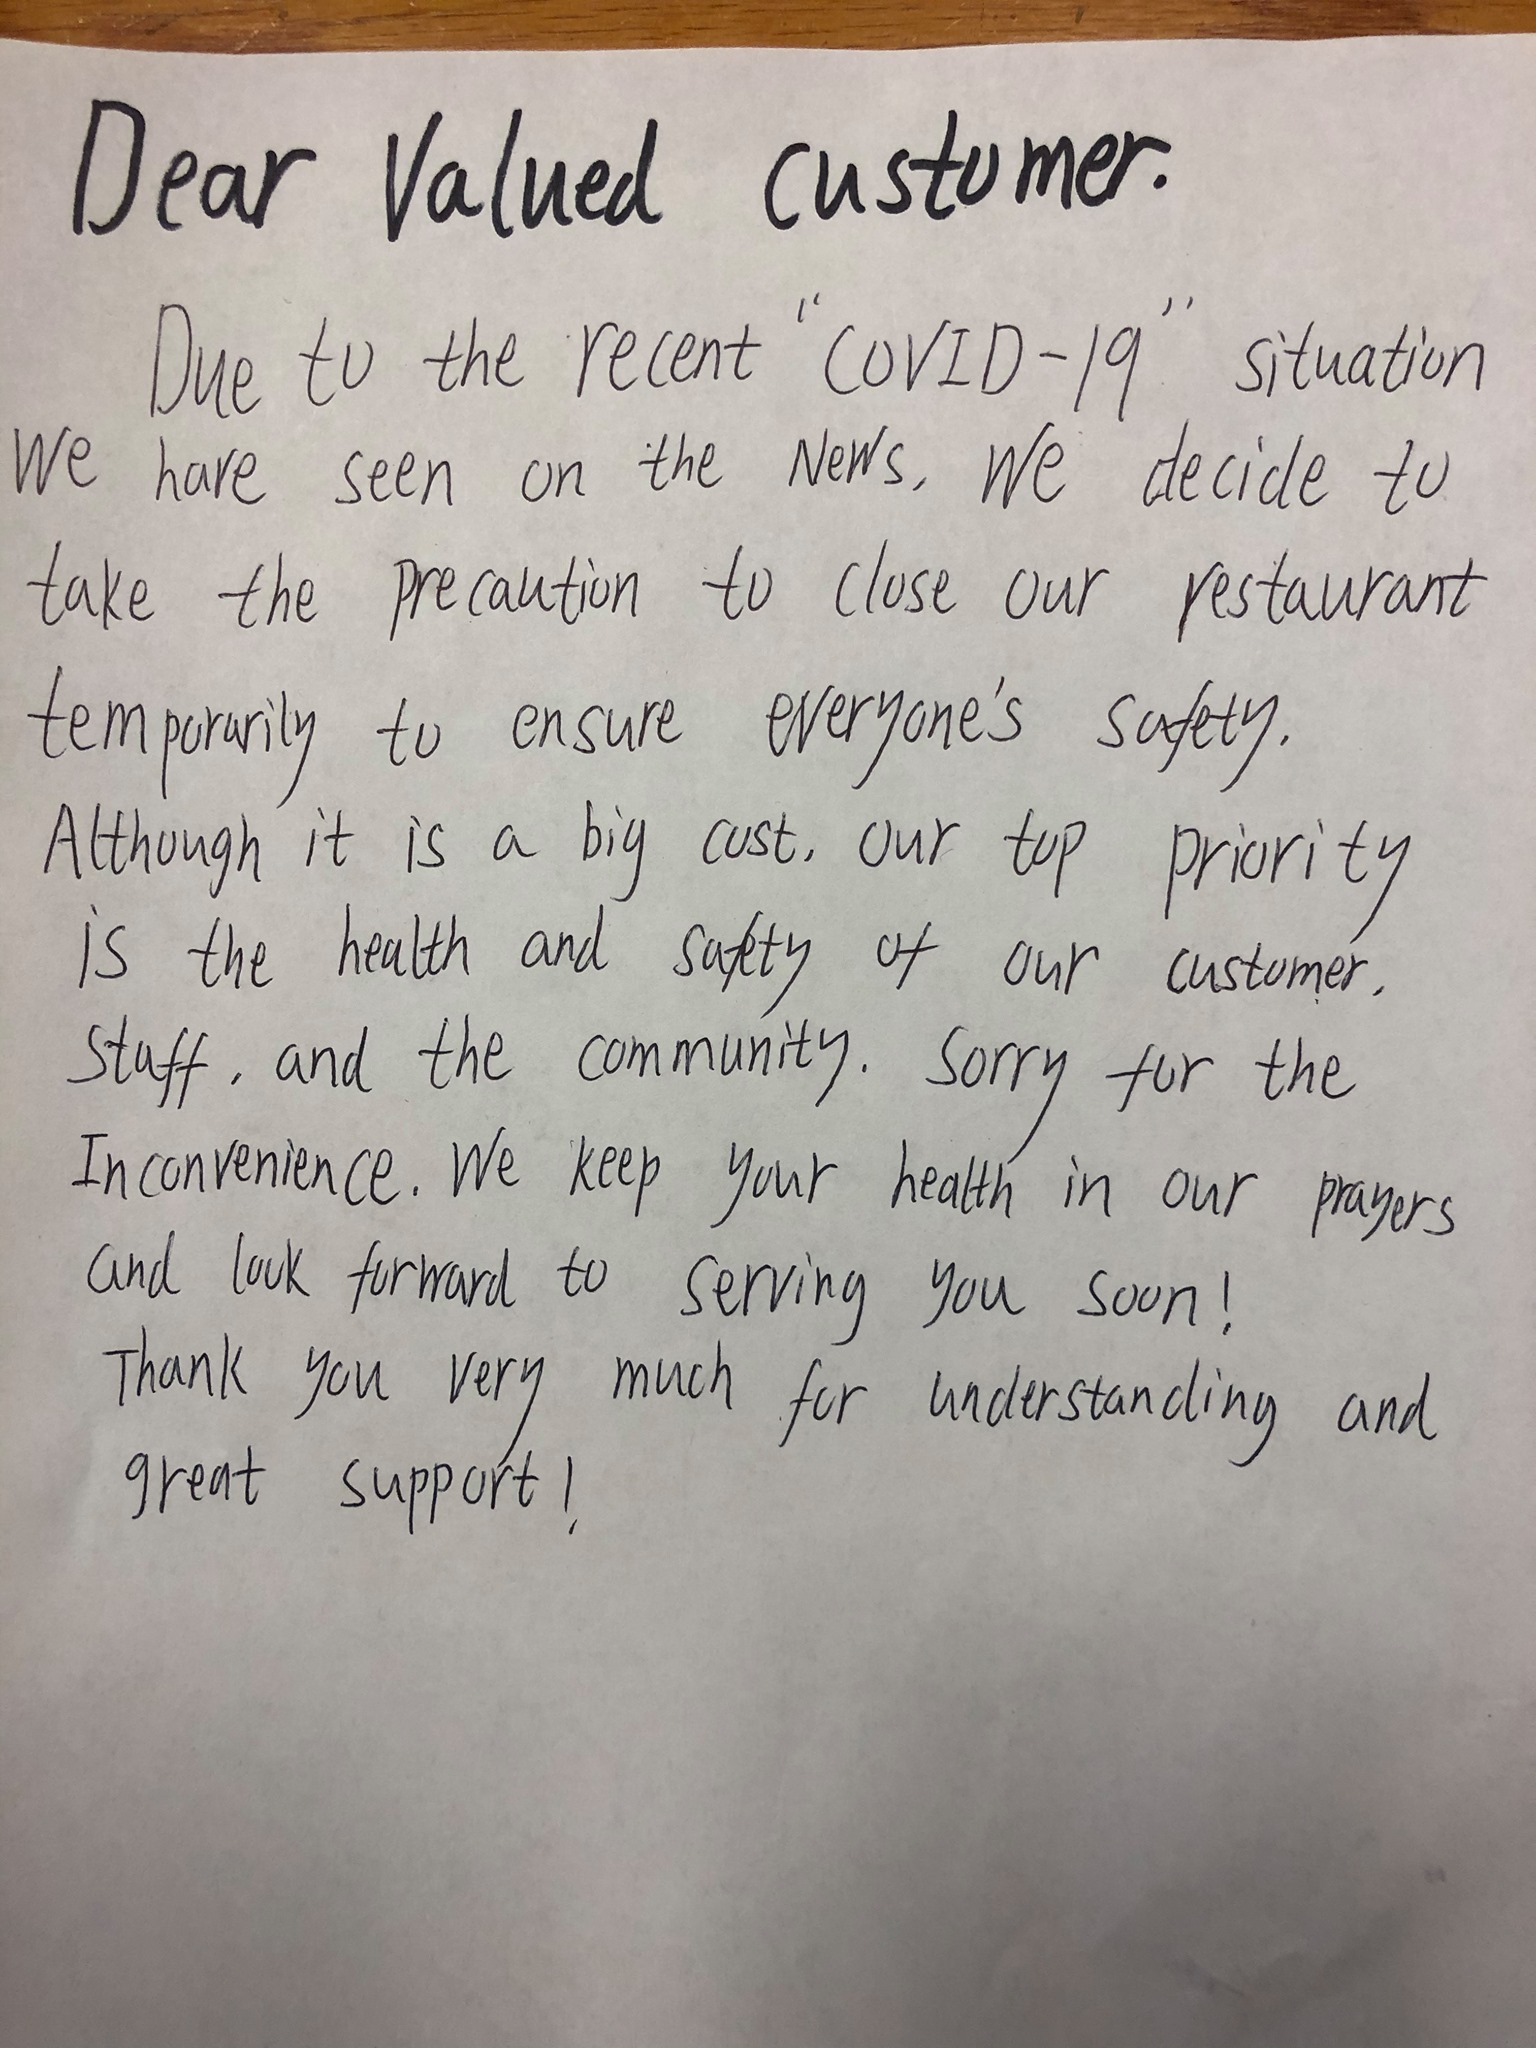 Dear Valued customer.
Due to the recent "COVID-19" situation
We have seen on the News, We decide to
take the precaution to close our restaurant
temporarily to ensure everyone's safety.
Although it is a big cost, our top priority
is the health and safety of our customer,
Staff, and the community. Sorry for the
Inconvenience. We keep your health in our prayers
and look forward to serving you soon!
Thank you very much for understanding and
great support!